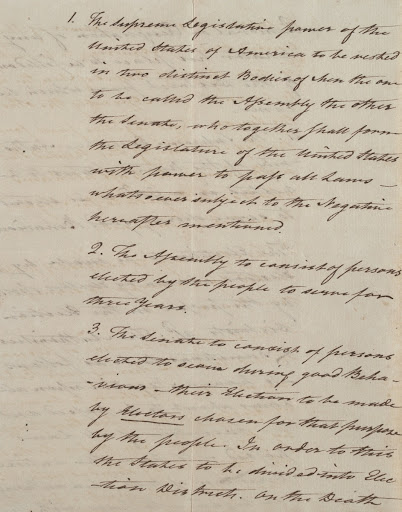 1. The Supreme Legislative power of the
United States of America to be vested
in two distinct Bodies of Men the one
to be called the Assembly the other
the Senate; who together shall form
the Legislature of the United States
with power to pass all Laws –
whatsoever subject to the Negative
hereafter mentioned
2. The Assembly to consist of persons
elected by the people to serve for
three Years.
3. The Senate to consist of persons
elected to serve during good Beha-
-viour – their Election to be made
by Electors chosen for that purpose
by the people. In order to this
the States to be divided into Elec
-tion Districts. On the Death